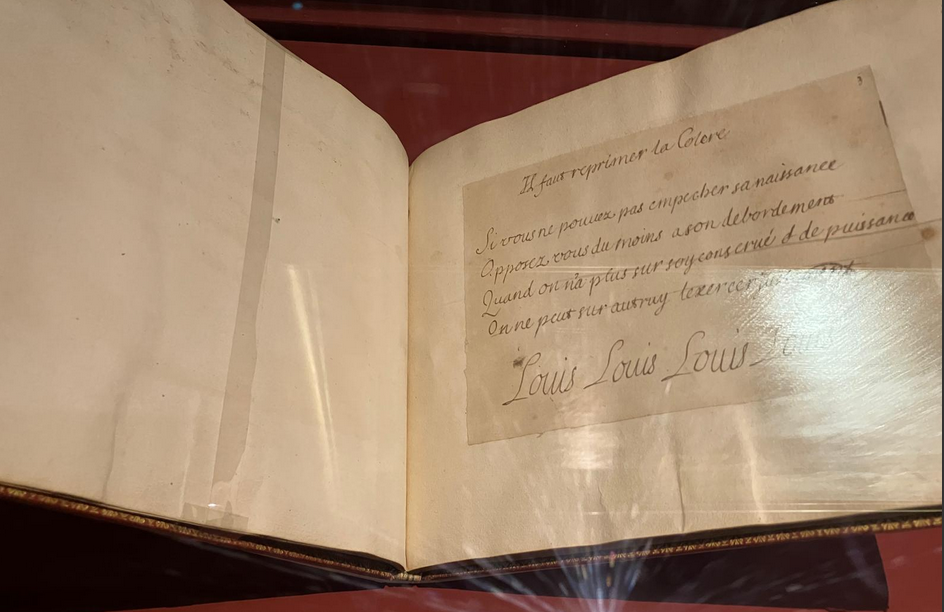 3
Il faut reprimer la Colere
Si vous ne pouuez pas empecher sa naissance
Opposez vous du moins a son debordement
Quand on n'a plus sur soy de puissance
On ne peut sur autruy lexercer
Louis Louis Louis Louis